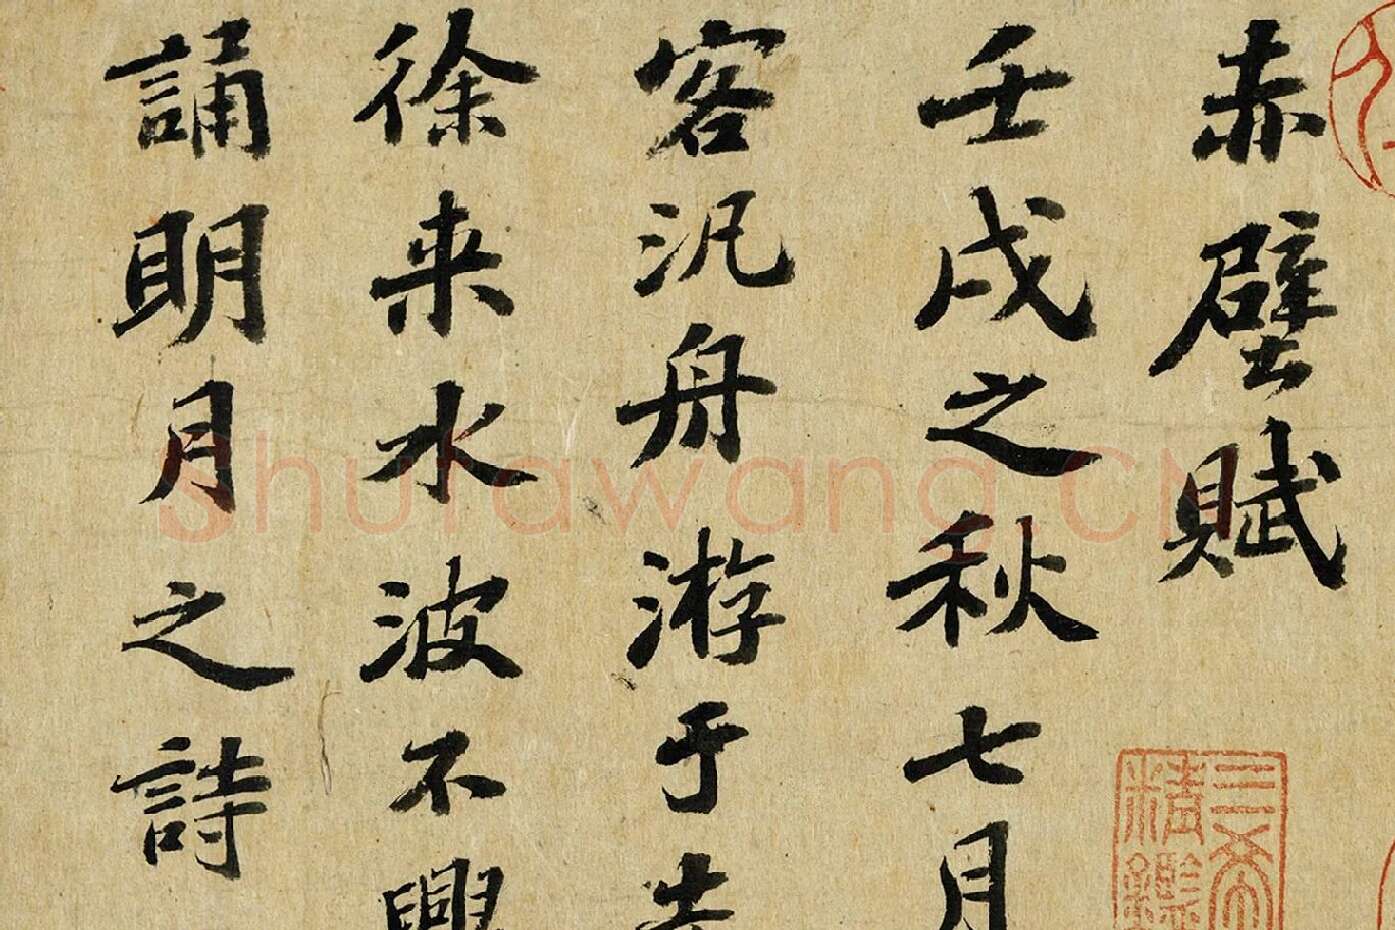 赤壁賦
壬戌之秋七月
客汎舟游于赤
徐来水波不興
誦明月之詩
三希
精鑑
shufawang.CN